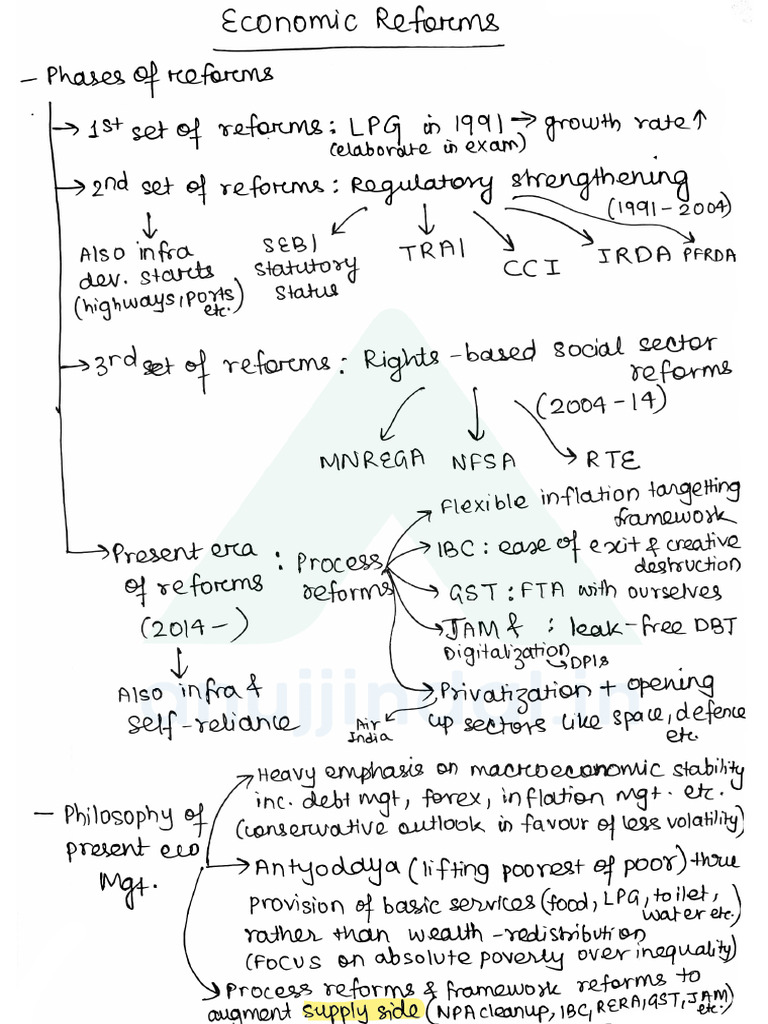 Economic Reforms
- Phases of reforms
→ 1st set of reforms : LPG in 1991 → growth rate ↑
(elaborate in exam)
→ 2nd set of reforms : Regulatory strengthening
(1991-2004)
Also infra
dev. starts
(highways, ports
etc.)
SEBI
statutory
status
TRAI
CCI
IRDA
PFRDA
→ 3rd set of reforms : Rights-based social sector
reforms
(2004-14)
MNREGA
NFSA
RTE
→ Present era
of reforms
(2014- )
: Process
reforms
Flexible inflation targetting
framework
IBC : ease of exit & creative
destruction
GST : FTA with ourselves
JAM & : leak-free DBT
Digitalization
→ DPIs
Privatization + opening
up sectors like space, defence
etc.
Air
India
Also infra &
self-reliance
anujjindal.in
- Philosophy of
present eco
Mgt.
Heavy emphasis on macroeconomic stability
inc. debt mgt, forex, inflation mgt. etc.
(conservative outlook in favour of less volatility)
Antyoddaya (lifting poorest of poor) thru
provision of basic services (food, LPG, toilet,
water etc.)
rather than wealth-redistribution
(Focus on absolute poverty over inequality)
Process reforms & framework reforms to
augment supply side (NPA cleanup, IBC, RERA, GST, JAM)